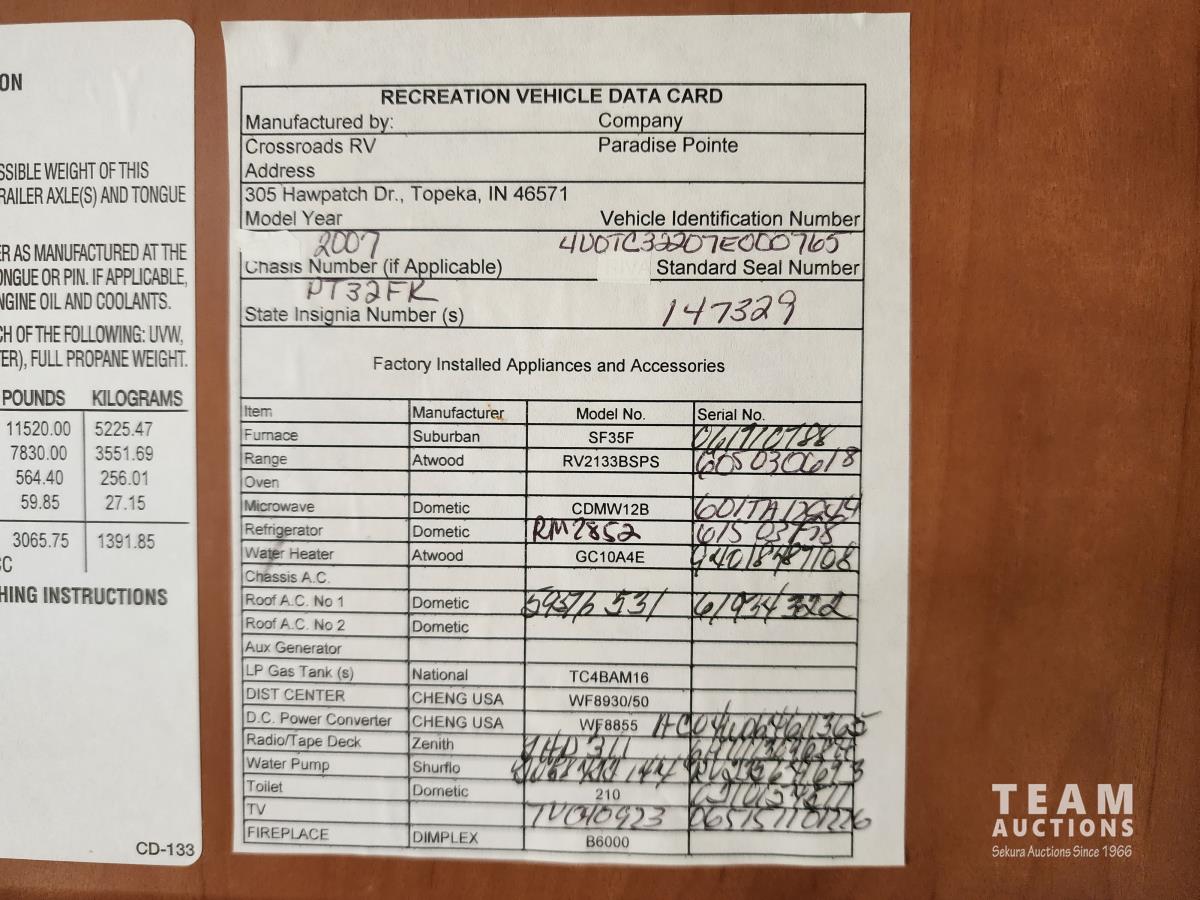 ON
SSIBLE WEIGHT OF THIS
RAILER AXLE(S) AND TONGUE
ER AS MANUFACTURED AT THE
ONGUE OR PIN. IF APPLICABLE,
NGINE OIL AND COOLANTS.
CH OF THE FOLLOWING: UVW,
TER), FULL PROPANE WEIGHT.
POUNDS KILOGRAMS
11520.00 5225.47
7830.00 3551.69
564.40 256.01
59.85 27.15
3065.75 1391.85
CC
HING INSTRUCTIONS
CD-133
RECREATION VEHICLE DATA CARD
Manufactured by: Company
Crossroads RV Paradise Pointe
Address
305 Hawpatch Dr., Topeka, IN 46571
Model Year Vehicle Identification Number
2007 4V0TC32207E000765
Chasis Number (if Applicable) Standard Seal Number
PT32FK 147329
State Insignia Number (s)
Factory Installed Appliances and Accessories
Item Manufacturer Model No. Serial No.
Furnace Suburban SF35F
Range Atwood RV2133BSPS 605030618
Oven
Microwave Dometic CDMW12B
Refrigerator Dometic RM2852
Water Heater Atwood GC10A4E
Chassis A.C.
Roof A.C. No 1 Dometic 61934322
Roof A.C. No 2 Dometic
Aux Generator
LP Gas Tank (s) National TC4BAM16
DIST CENTER CHENG USA WF8930/50
D.C. Power Converter CHENG USA WF8855
Radio/Tape Deck Zenith
Water Pump Shurflo
Toilet Dometic 210
TV
FIREPLACE DIMPLEX B6000
TEAM
AUCTIONS
Sekura Auctions Since 1966